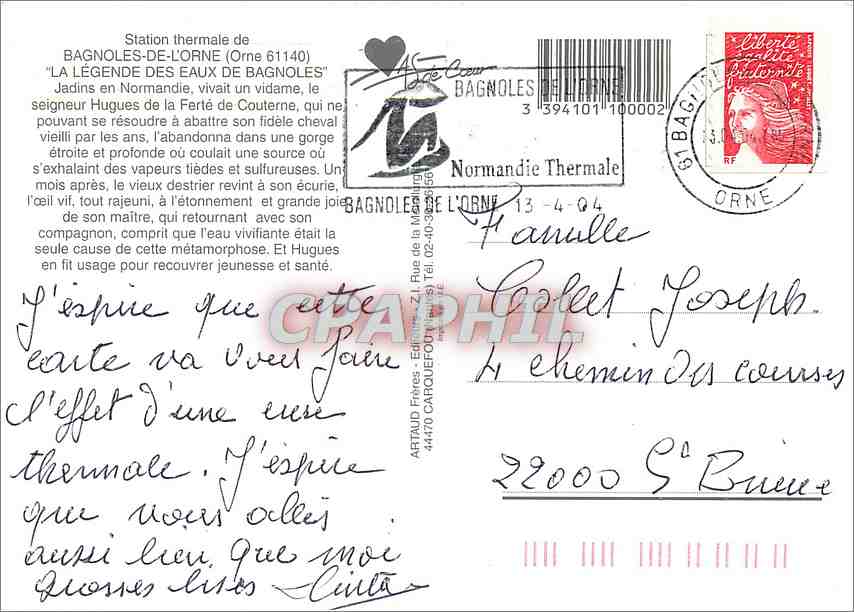 Station thermale de
BAGNOLES-DE-L'ORNE (Orne 61140)
"LA LÉGENDE DES EAUX DE BAGNOLES"
Jadins en Normandie, vivait un vidame, le
seigneur Hugues de la Ferté de Couterne, qui ne
pouvant se résoudre à abattre son fidèle cheval
vieilli par les ans, l'abandonna dans une gorge
étroite et profonde où coulait une source où
s'exhalaint des vapeurs tièdes et sulfureuses. Un
mois après, le vieux destrier revint à son écurie,
l'œil vif, tout rajeuni, à l'étonnement et grande joie
de son maître, qui retournant avec son
compagnon, comprit que l'eau vivifiante était la
seule cause de cette métamorphose. Et Hugues
en fit usage pour recouvrer jeunesse et santé.
J'espire que cette
carte va vous faire
l'effet d'une cure
thermale. J'espire
que vous allés
aussi bien que moi
Grosses bises
AS de Cœur
BAGNOLES DE L'ORNE
Normandie Thermale
BAGNOLES DE L'ORNE 13-4-04
3 394101 100002
liberté
égalité
fraternité
RF
61 BAGNOLES
ORNE
ARTAUD Frères - Editeurs - Z.I. Rue de la Métallurgie
44470 CARQUEFOU (Nantes) Tél. 02-40-30
Famille
Collet Joseph
4 chemin des courses
22000 St Brieuc
CPAPHIL